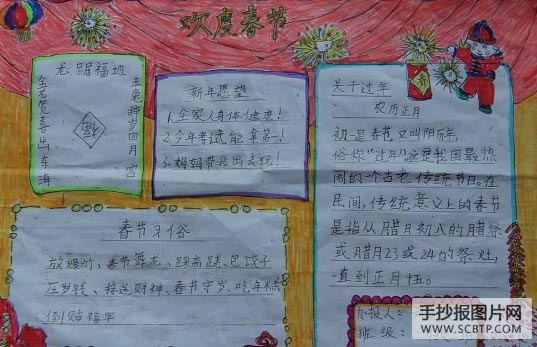 欢度春节
龙踞福地
金虎喜出东海
玉兔辞岁回月宫
新年愿望
1.全家人身体健康！
2.今年考试能拿第一！
3.妈妈带我出去玩！
关于过年
农历正月
初一是春节又叫阴历年，
俗称“过年”这是我国最热
闹的一个古老传统节日。在
民间，传统意义上的春节
是指从腊月初八的腊祭
或腊月23或24的祭灶，
一直到正月十五。
春节习俗
放爆竹、春节舞龙、踩高跷、包饺子
压岁钱、接送财神、春节守岁、吃年糕
倒贴福字
办报人：
班级：
手抄报图片网
WWW.SCBTP.COM